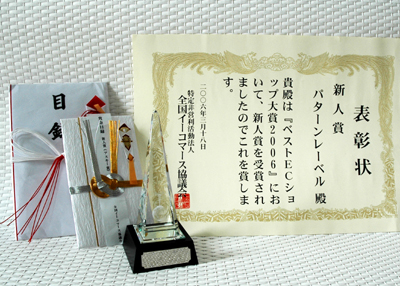 表彰状
新人賞
パターンレーベル 殿
貴殿は『ベストECショ
ップ大賞2006』にお
いて、新人賞を受賞され
ましたのでこれを賞しま
す。
二〇〇六年三月十八日
特定非営利活動法人
全国イーコマース協議会
目録